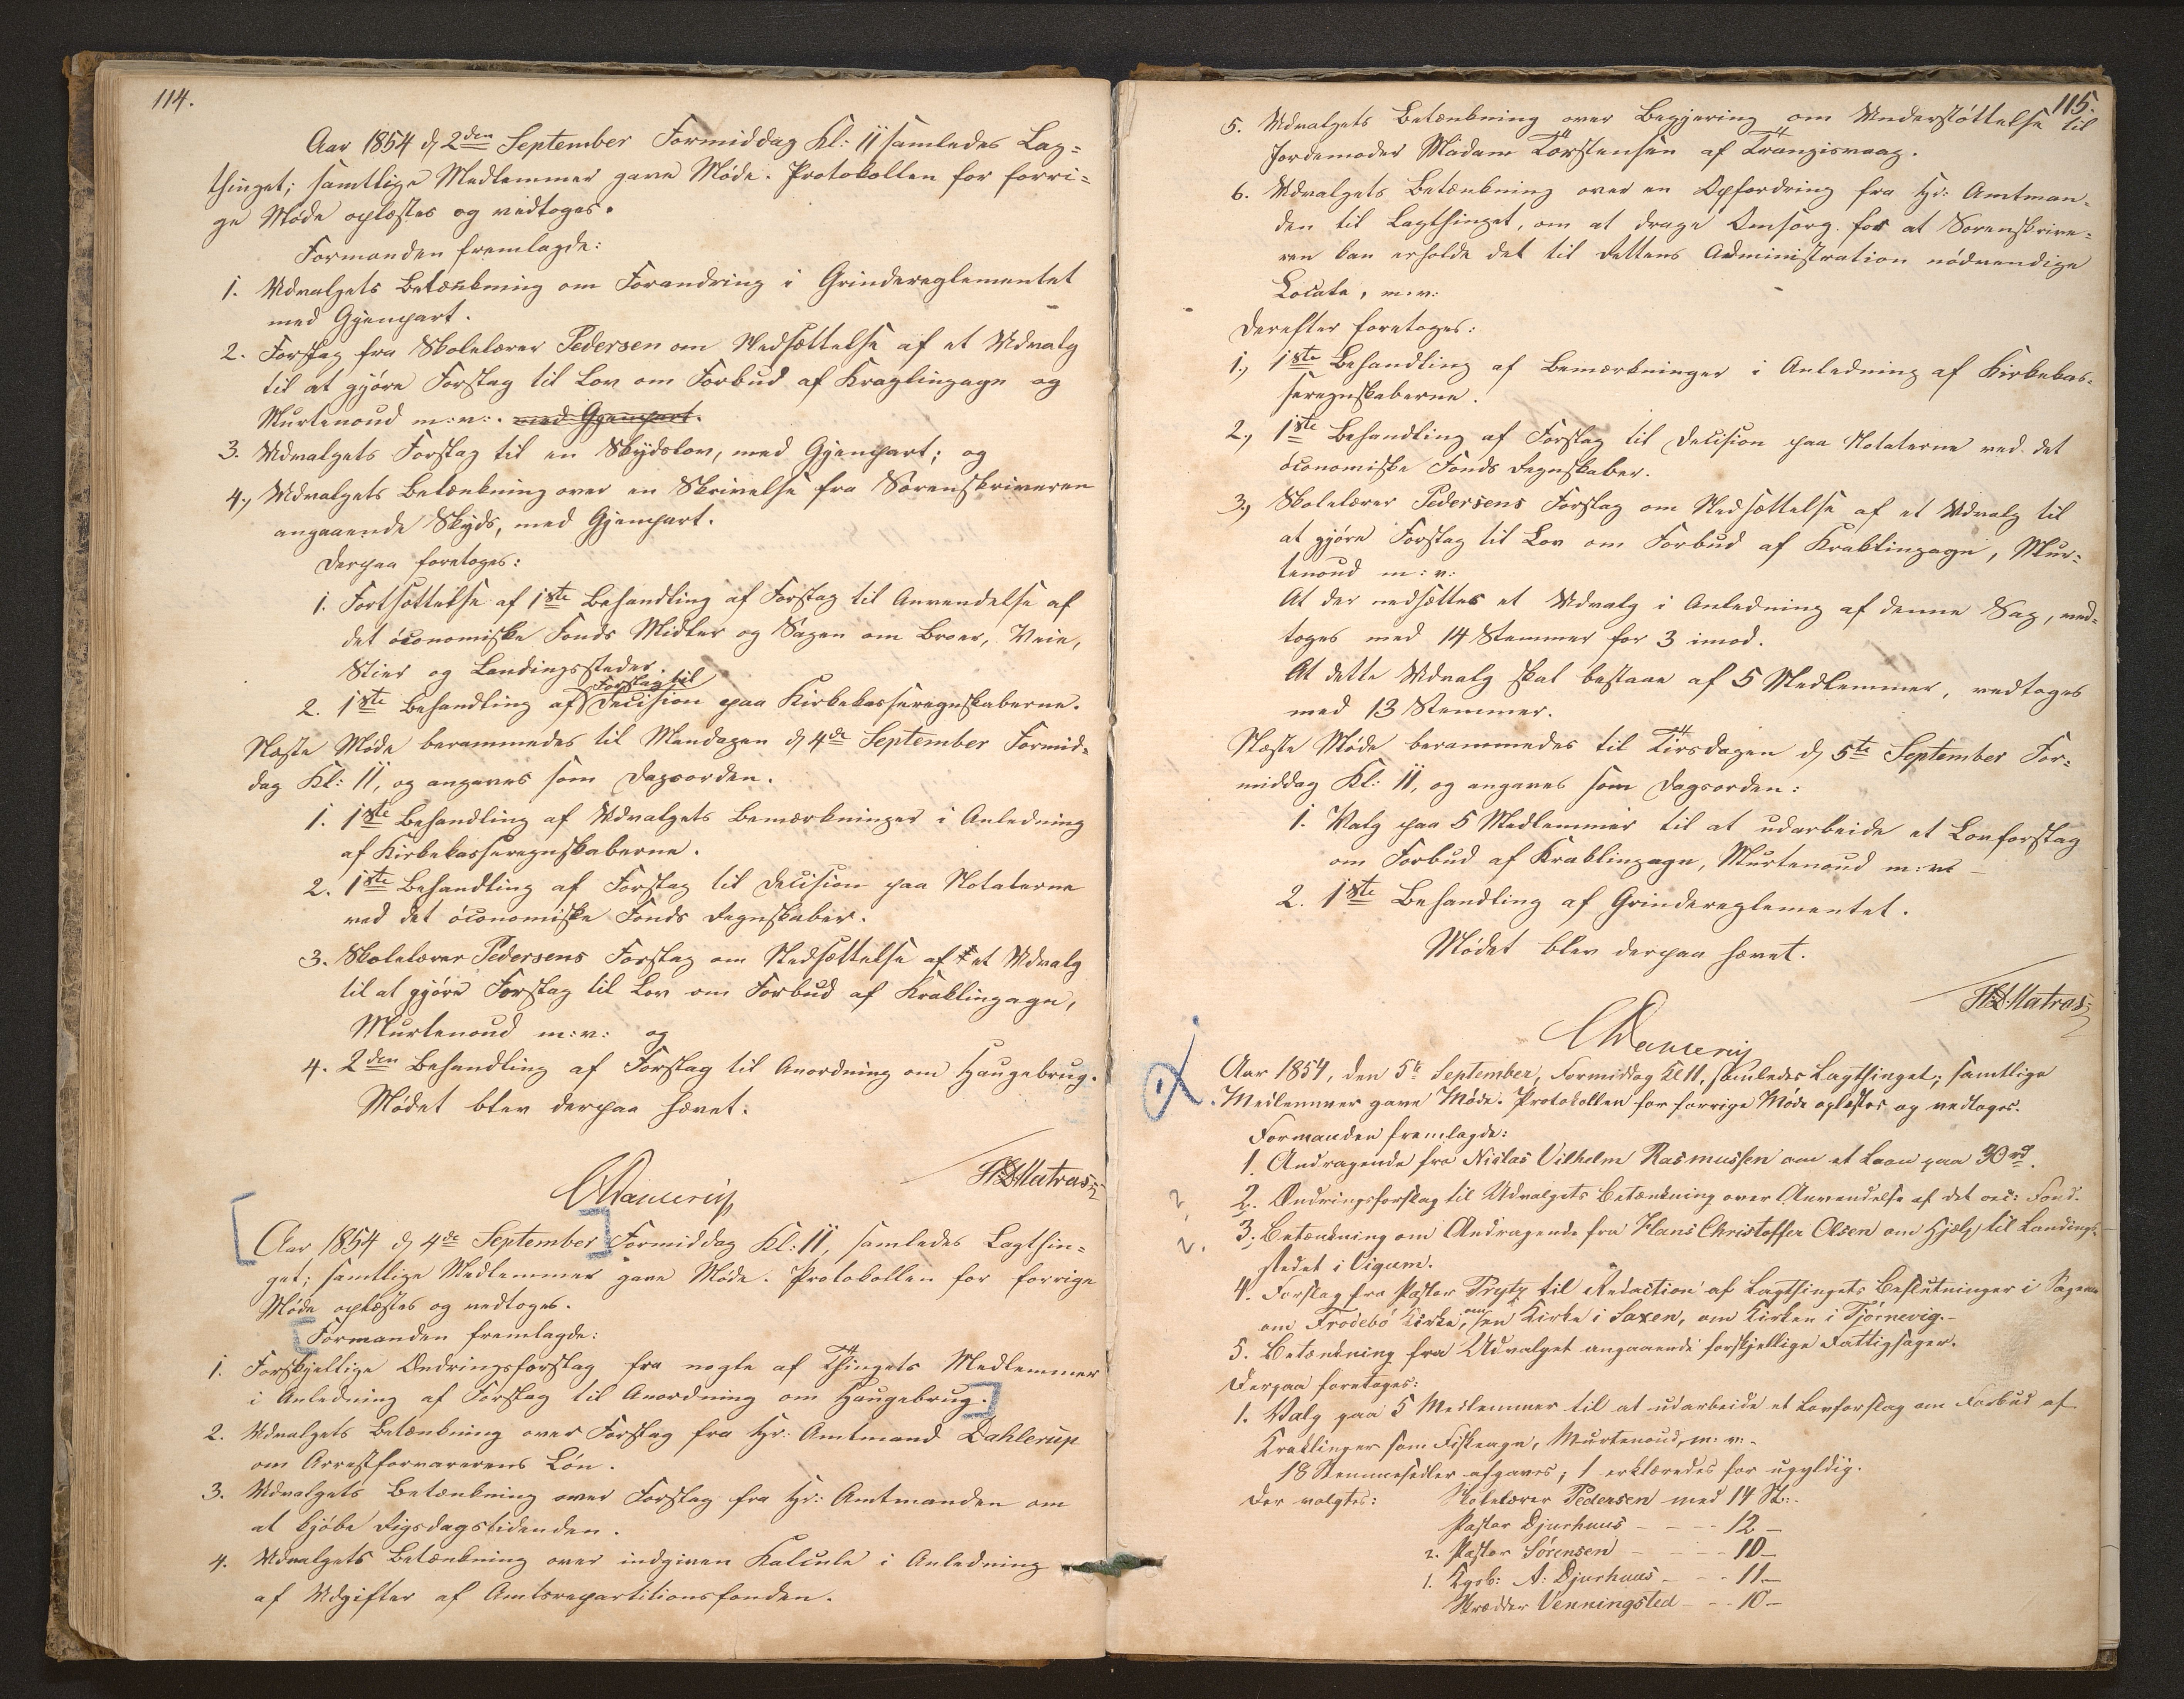 114.
Aar 1854 d 2den September Formiddag Kl: 11 samledes Lag=
thinget; samtlige Medlemmer gave Møde. Protokollen for forri=
ge Møde oplæstes og vedtoges.
Formanden fremlagde:
1. Udvalgets Betænkning om Forandring i Grindereglementet
med Gjenpart.
2. Forslag fra Skolelærer Pedersen om Nedsættelse af et Udvalg
til at gjøre Forslag til Lov om Forbud af Kraglingagn og
Murtenoud m: v: . med Gjenpart.
3. Udvalgets Forslag til en Skydslov, med Gjenpart; og
4., Udvalgets Betænkning over en Skrivelse fra Sorenskriveren
angaaende Skyds, med Gjenpart.
Derpaa foretoges:
1. Fortsættelse af 1ste Behandling af Forslag til Anvendelse af
det óconomiske Fonds Midler og Sagen om Broer, Veie,
Stier og Landingssteder.
Forslag til
2. 1ste Behandling af Decision paa Kirkekasseregnskaberne.
Næste Møde berammedes til Mandagen d 4de September Formid=
dag Kl: 11, og angaves som Dagsorden.
1. 1ste Behandling af Udvalgets Bemærkninger i Anledning
af Kirkekasseregnskaberne.
2. 1ste Behandling af Forslag til Decision paa Notaterne
ved det óconomiske Fonds Regnskaber.
3. Skolelærer Pedersens Forslag om Nedsættelse af et Udvalg
til at gjøre Forslag til Lov om Forbud af Kraklingagn,
Murtenoud m: v: og
4. 2den Behandling af Forslag til Anordning om Haugebrug.
Mødet blev derpaa hævet.
HDMatras
CDanceriis
Aar 1854 d 4de September Formiddag Kl: 11, samledes Lagthin=
get; samtlige Medlemmer gave Møde. Protokollen for forrige
Møde oplæstes og vedtoges.
Formanden fremlagde:
1. Forskjellige Ændringsforslag fra nogle af Thingets Medlemmer
i Anledning af Forslag til Anordning om Haugebrug.
2. Udvalgets Betænkning over Forslag fra Hr: Amtmand Dahlerup
om Arrestforvarerens Løn.
3. Udvalgets Betænkning over Forslag fra Hr: Amtmanden om
at kjøbe Rigsdagstidenden.
4. Udvalgets Betænkning over indgiven Kalcule i Anledning
af Udgifter af Amtsrepartitionsfonden.
115.
5. Udvalgets Betænkning over Begjering om Understøttelse til
Jordemoder Madam Torstensen af Trangisvaag.
6. Udvalgets Betænkning over en Opfordring fra Hr: Amtman=
den til Lagthinget, om at drage Omsorg for at Sorenskrive=
ren kan erholde det til Rettens Administration nødvendige
Locale, m: v:
Derefter foretoges:
1., 1ste Behandling af Bemærkninger i Anledning af Kirkekas=
seregnskaberne.
2., 1ste Behandling af Forslag til Decision paa Notaterne ved det
óconomiske Fonds Regnskaber.
3., Skolelærer Pedersens Forslag om Nedsættelse af et Udvalg til
at gjøre Forslag til Lov om Forbud af Kraklingagn, Mur=
tenoud m: v:
At der nedsættes et Udvalg i Anledning af denne Sag, ved=
toges med 14 Stemmer for 3 imod.
At dette Udvalg skal bestaae af 5 Medlemmer, vedtoges
med 13 Stemmer.
Næste Møde berammedes til Tirsdagen d 5te September For=
middag Kl: 11, og angaves som Dagsorden:
1. Valg paa 5 Medlemmer til at udarbeide et Lovforslag
om Forbud af Kraklingagn, Murtenoud m: v:
2. 1ste Behandling af Grindereglementet.
Mødet blev derpaa hævet.
HDMatras
CDanceriis
Aar 1854, den 5te September, Formiddag Kl 11, samledes Lagthinget; samtlige
Medlemmer gave Møde. Protokollen for forrige Møde oplæstes og vedtoges.
Formanden fremlagde:
1. Andragende fra Niclas Vilhelm Rasmussen om et Laan paa 30 rd.
2. Ændringsforslag til Udvalgets Betænkning over Anvendelse af det oec: Fond.
3. Betænkning om Andragende fra Hans Christoffer Olsen om Hjælp til Landings-
stedet i Vigum.
4. Forslag fra Pastor Prytz til Redaction af Lagthingets Beslutninger i Sagerne
om Frodebø Kirke, om en Kirke i Saxen, om Kirken i Tjørnevig.
5. Betænkning fra Udvalget angaaende forskjellige Fattigsager.
Derpaa foretoges:
1. Valg paa 5 Medlemmer til at udarbeide et Lovforslag om Forbud af
Kraklinger som Fiskeagn, Murtenoud, m: v: -
18 Stemmesedler afgaves; 1 erklæredes for ugyldig.
Der valgtes: Skolelærer Pedersen med 14 St:
Pastor Djurhuus - - - 12 -
2. Pastor Sørensen - - - 10 -
1. Kgsb: A: Djurhuus - - - 11 -
Skrædder Venningsted - - 10 -